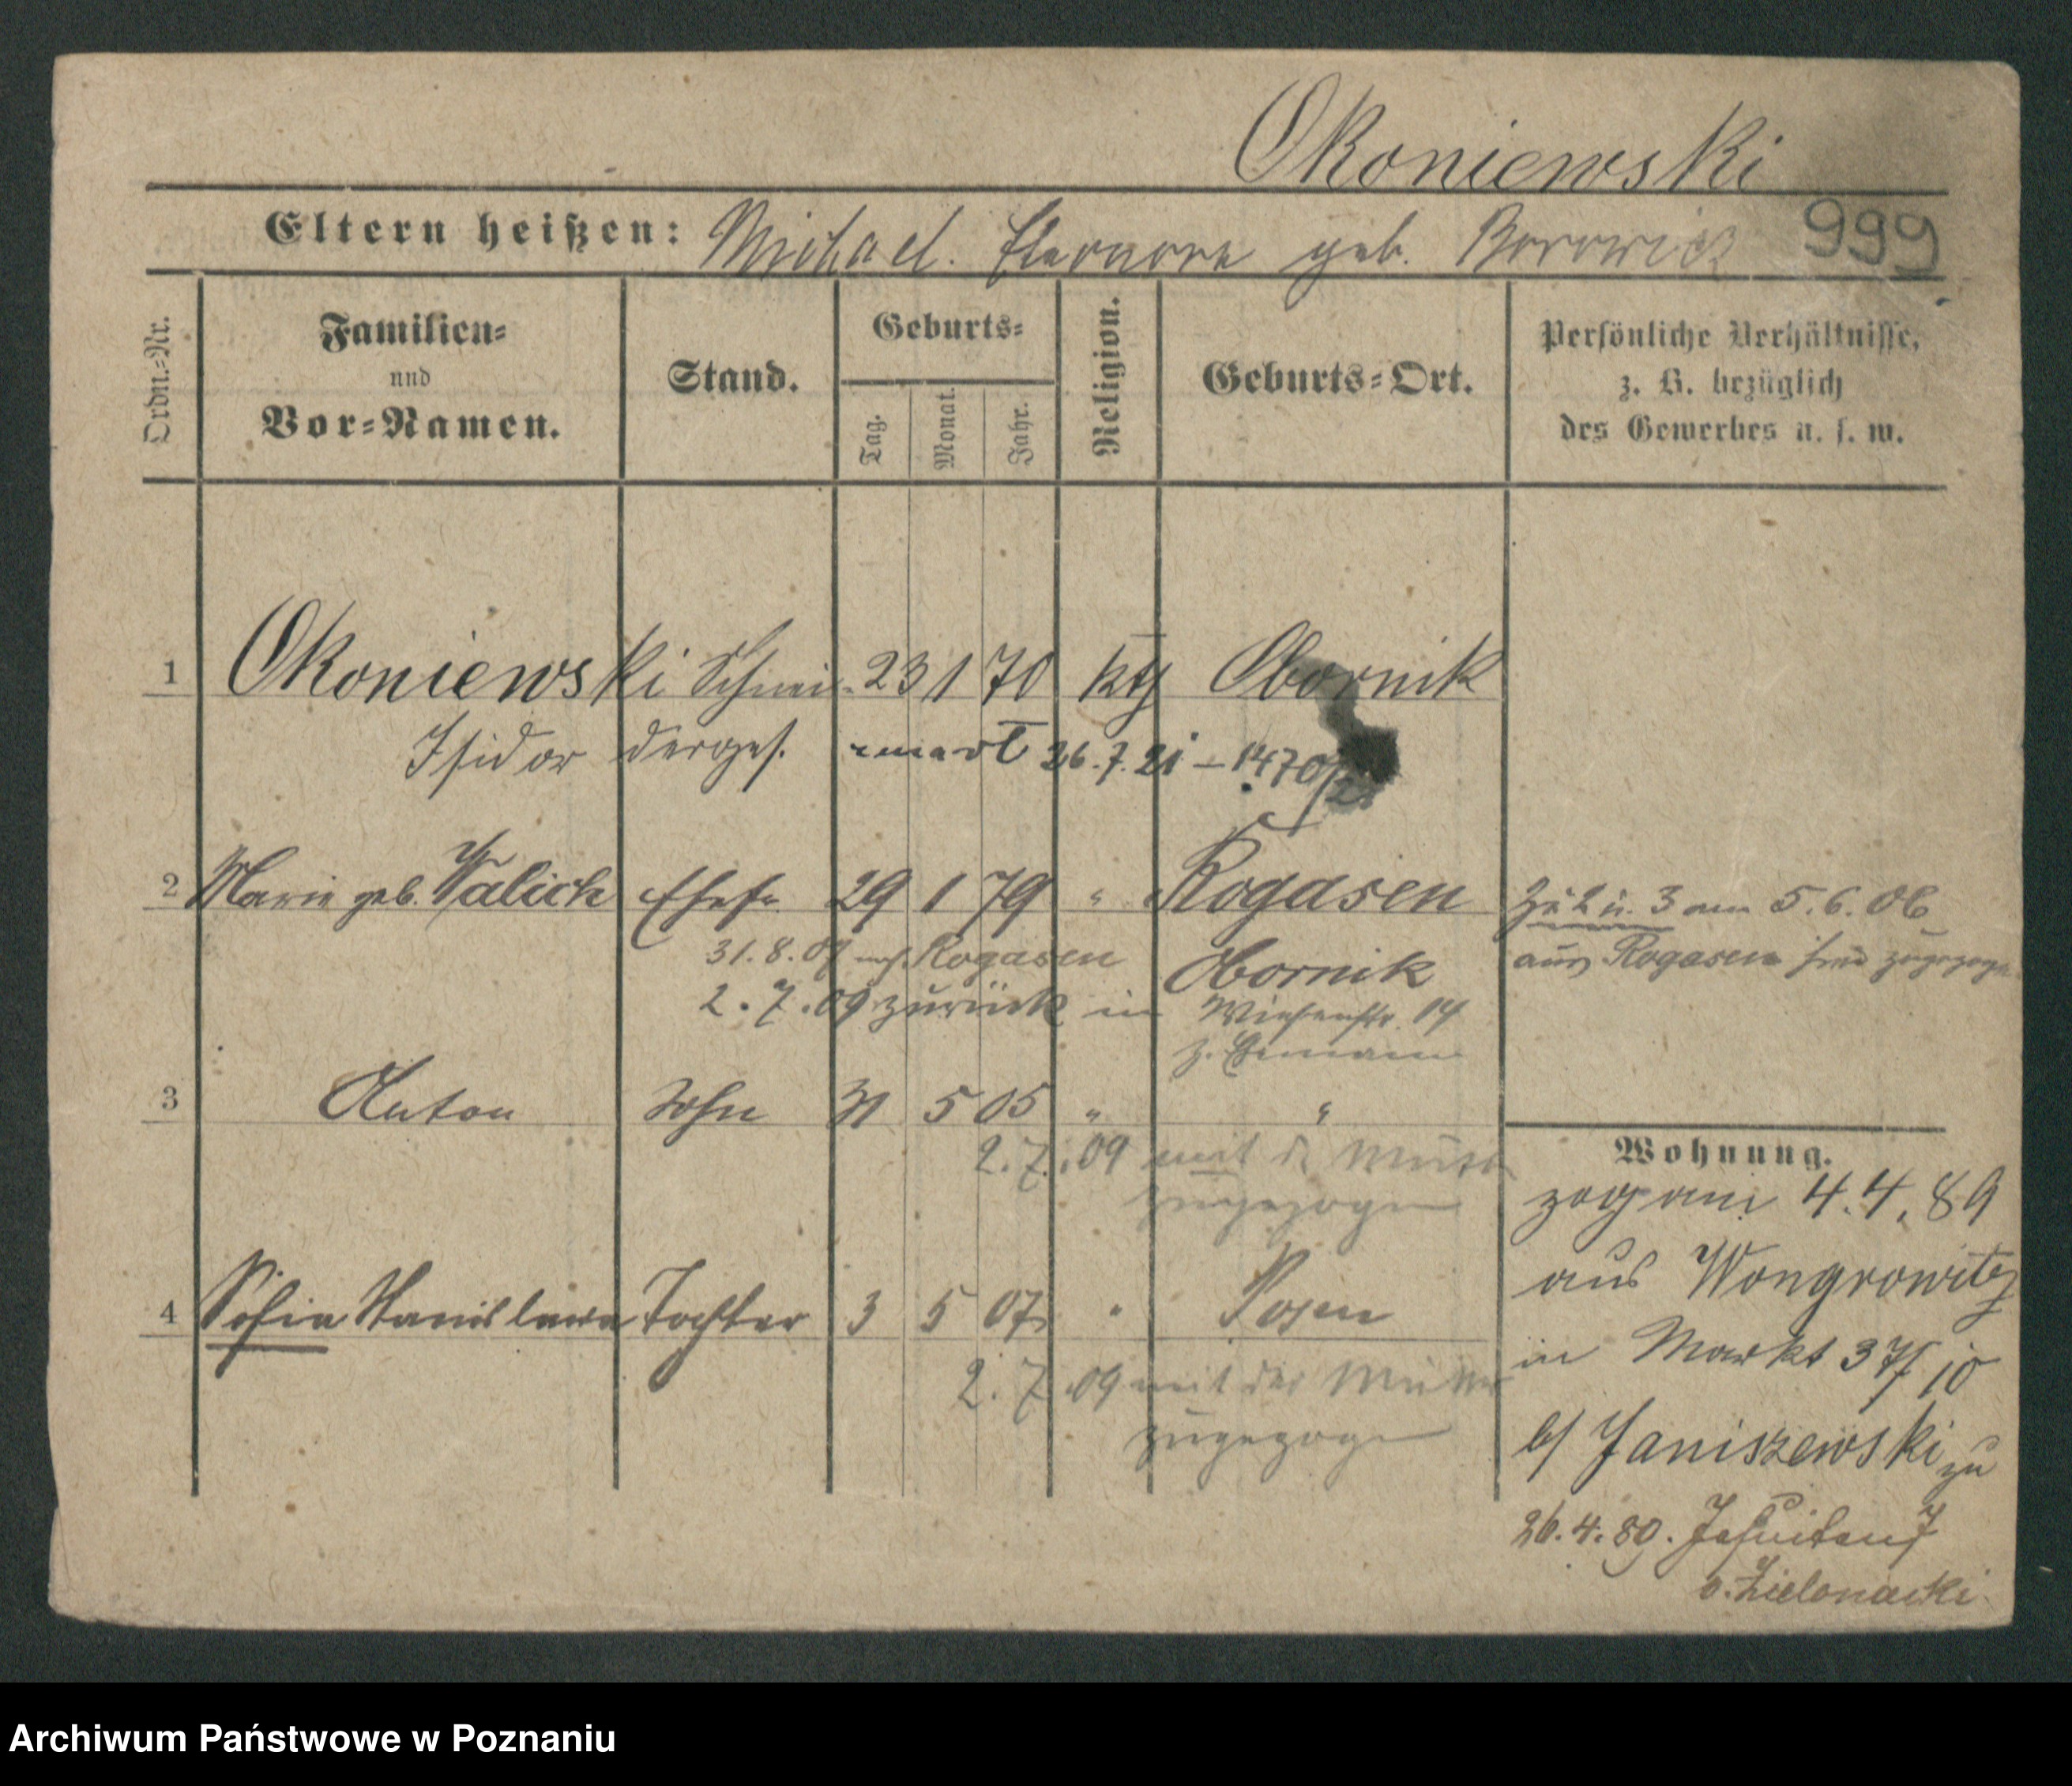 Okoniewski
Eltern heißen: Michael. Eleonore geb. Borowicz 999
Ordn.-Nr.
Familien- und Vor-Namen.
Stand.
Geburts-
Tag. Monat. Jahr.
Religion.
Geburts-Ort.
Persönliche Verhältnisse,
z. B. bezüglich
des Gewerbes u. s. w.
1 Okoniewski Schnei- 23 1 70 kth Obornik
Isidor derges. 26.7.21 – 1470/21
2 Marie geb. Walich Ehefr. 29 1 79 " Rogasen
Zu 2 u. 3 am 5.6.06
aus Rogasen hier zugezogen
31.8.07 nach Rogasen Obornik
2.7.09 zurück in Wiesenstr. 14
z. Ehemann
3 Anton Sohn 31 5 05 " "
2.7.09 mit d. Mutter
zugezogen
4 Sofia Stanislawa Tochter 3 5 07 " Posen
2.7.09 mit der Mutter
zugezogen
Wohnung.
zog am 4.4.89
aus Wongrowitz
in Markt 37/10
b/ Janiszewski zu
26.4.89. Jesuitens 7
b. Zielonacki
Archiwum Państwowe w Poznaniu